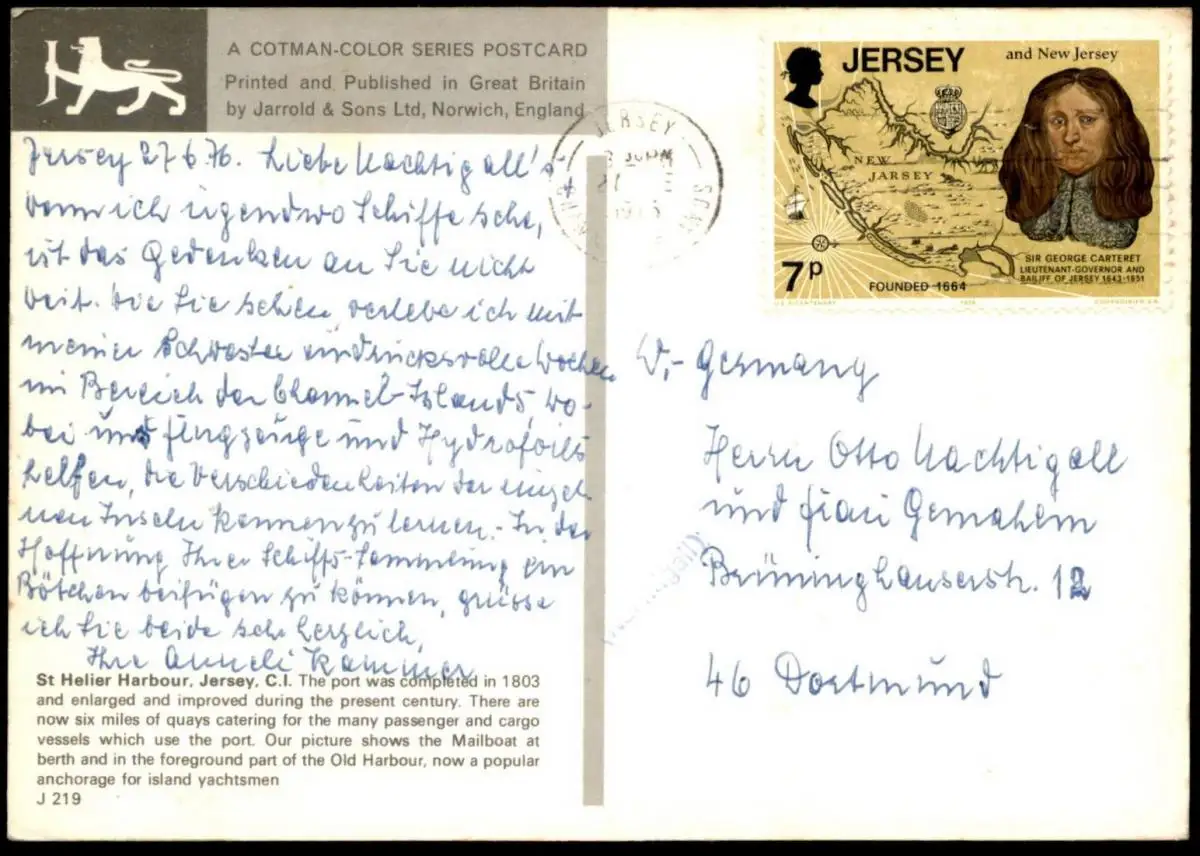 A COTMAN-COLOR SERIES POSTCARD
Printed and Published in Great Britain
by Jarrold & Sons Ltd, Norwich, England
Jersey 27.6.76. Liebe Nachtigall's
wenn ich irgendwo Schiffe sehe,
ist das Gedenken an Sie nicht
weit. Wie Sie sehen, verlebe ich mit
meiner Schwester eindrucksvolle Wochen
im Bereich der Channel-Islands, wo-
bei uns Flugzeuge und Hydrofoils
helfen, die Verschiedenheiten der einzel
nen Inseln kennenzulernen. - In der
Hoffnung Ihrer Schiffs-Sammlung ein
Bötchen beifügen zu können, grüsse
ich Sie beide sehr herzlich,
Ihre Anneli Kammer
St Helier Harbour, Jersey, C.I. The port was completed in 1803
and enlarged and improved during the present century. There are
now six miles of quays catering for the many passenger and cargo
vessels which use the port. Our picture shows the Mailboat at
berth and in the foreground part of the Old Harbour, now a popular
anchorage for island yachtsmen
J 219
JERSEY
JERSEY and New Jersey
NEW
JARSEY
7p
FOUNDED 1664
SIR GEORGE CARTERET
LIEUTENANT-GOVERNOR AND
BAILIFF OF JERSEY 1643-1651
U.S. BICENTENARY 1976 COURVOISIER S.A.
W.-Germany
Herrn Otto Nachtigall
und Frau Gemahlin
Brüninghauserstr. 12
46 Dortmund